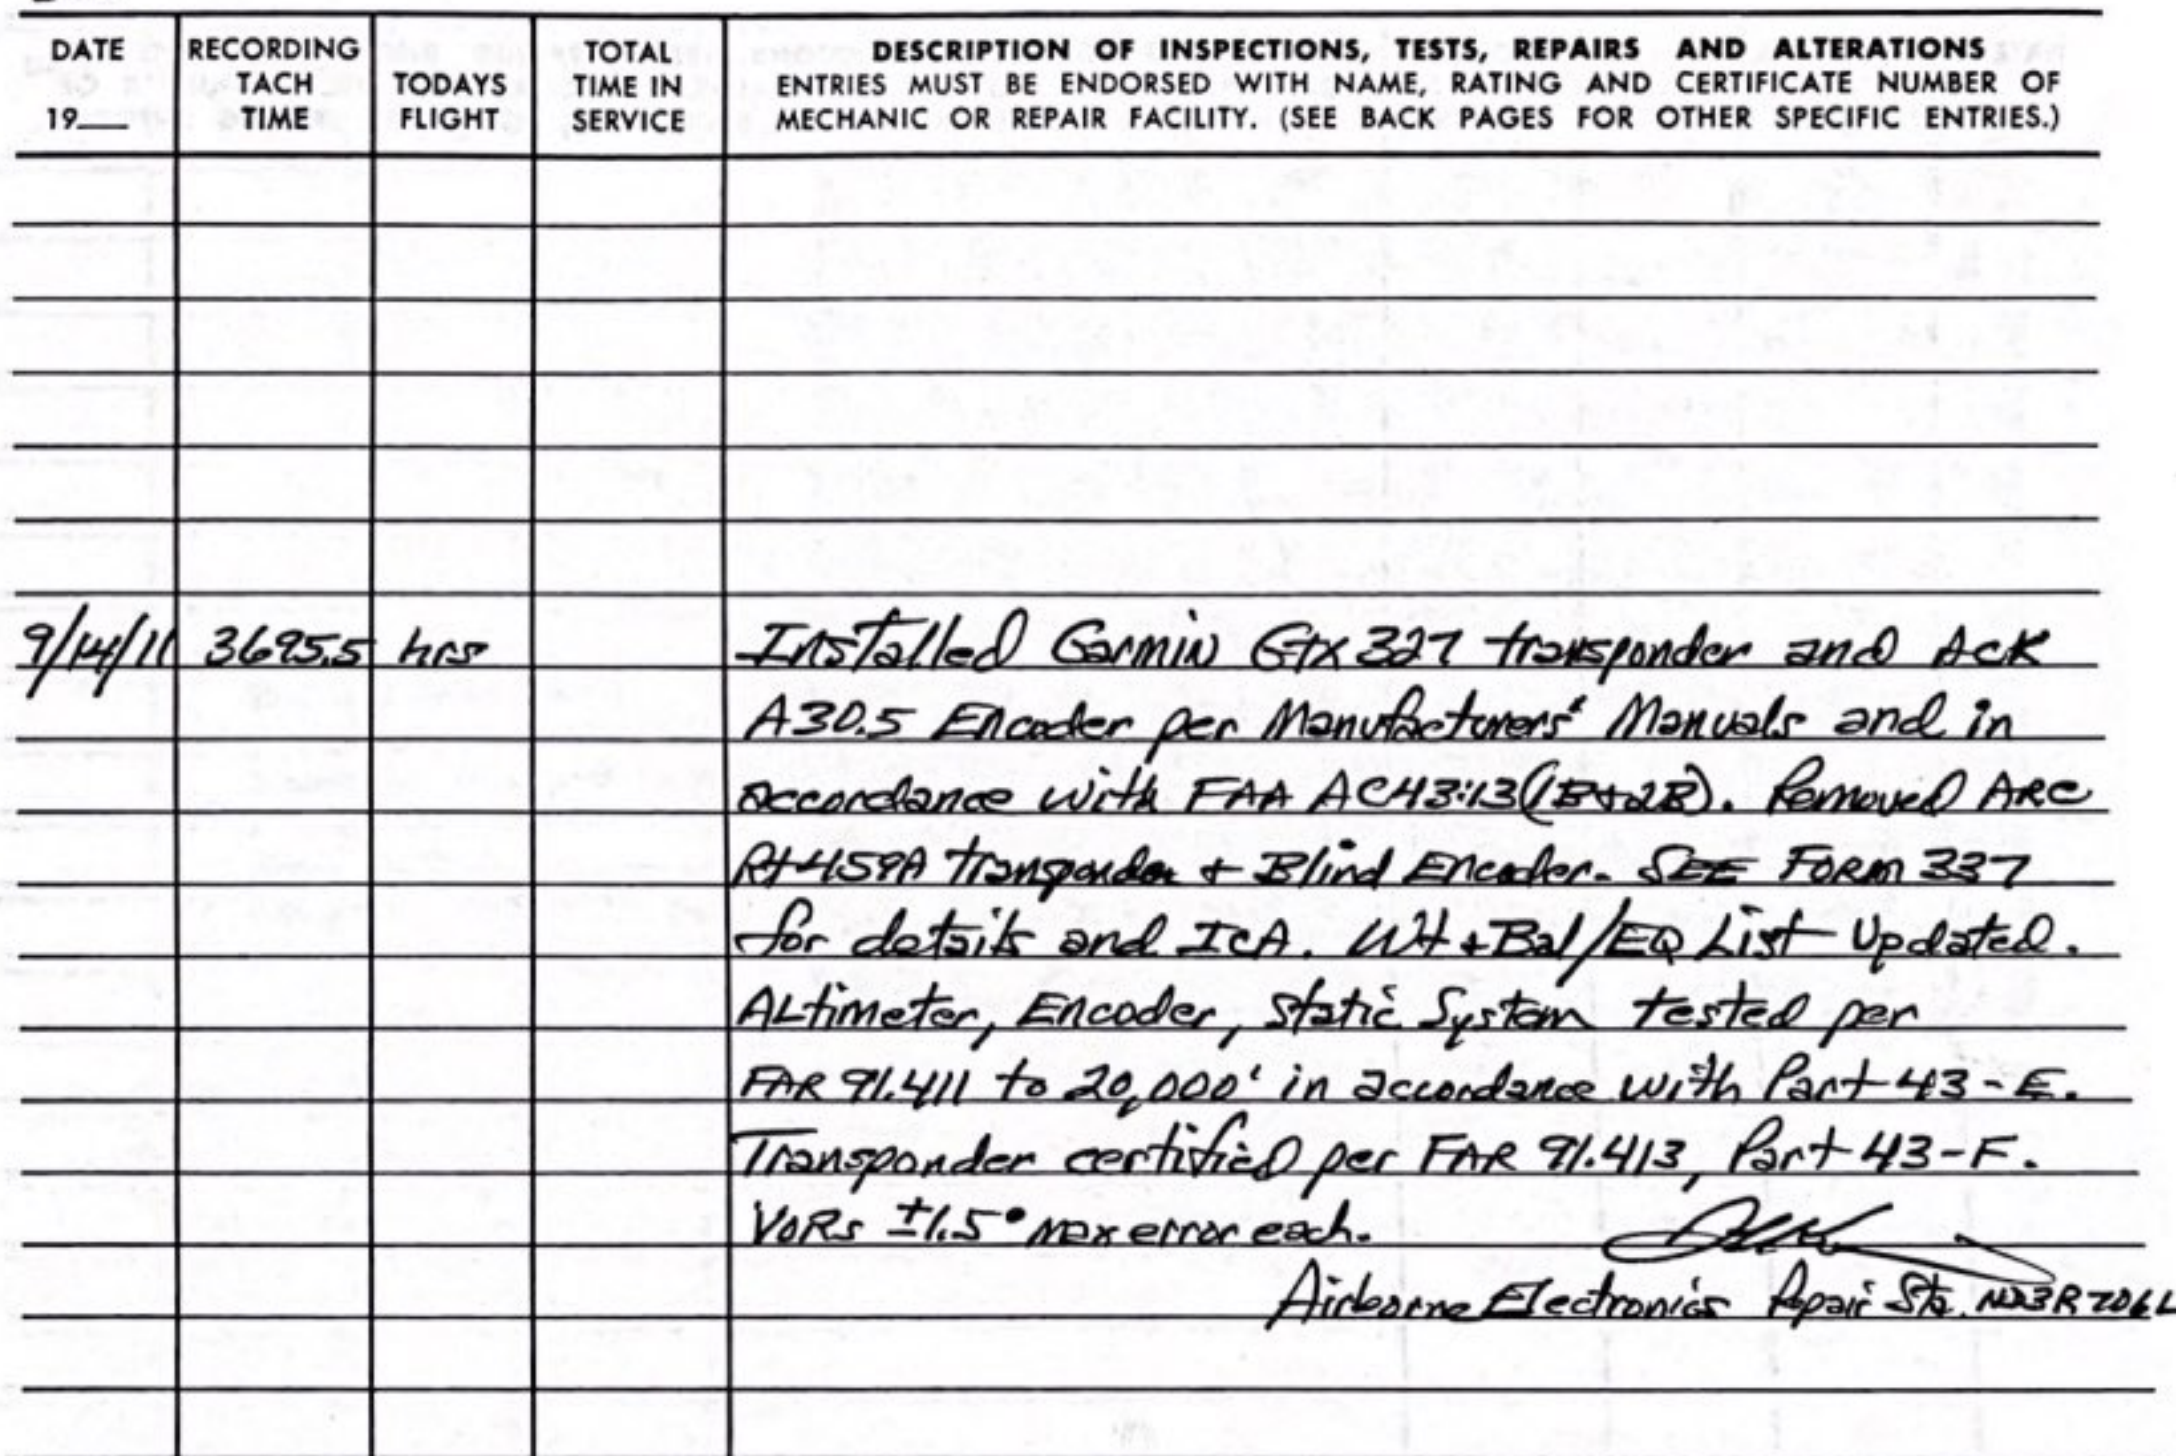 DATE 19___
RECORDING TACH TIME
TODAYS FLIGHT
TOTAL TIME IN SERVICE
DESCRIPTION OF INSPECTIONS, TESTS, REPAIRS AND ALTERATIONS
ENTRIES MUST BE ENDORSED WITH NAME, RATING AND CERTIFICATE NUMBER OF
MECHANIC OR REPAIR FACILITY. (SEE BACK PAGES FOR OTHER SPECIFIC ENTRIES.)
9/14/11 3695.5 hrs Installed Garmin GTX 327 transponder and ACK
A30.5 Encoder per Manufacturers' Manuals and in
accordance with FAA AC43.13(1B+2B). Removed ARC
RT459A transponder + Blind Encoder. SEE FORM 337
for details and ICA. Wt + Bal/EQ List Updated.
Altimeter, Encoder, Static System tested per
FAR 91.411 to 20,000' in accordance with Part 43-E.
Transponder certified per FAR 91.413, Part 43-F.
VORs ±1.5° max error each.
Airborne Electronics Repair Sta.